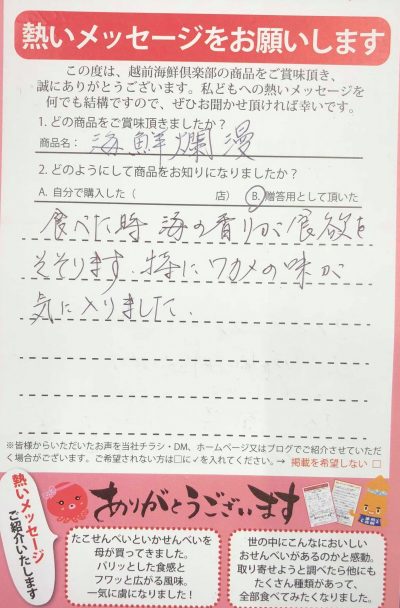 熱いメッセージをお願いします
この度は、越前海鮮倶楽部の商品をご賞味頂き、
誠にありがとうございます。私どもへの熱いメッセージを
何でも結構ですので、ぜひお聞かせ頂ければ幸いです。
1. どの商品をご賞味頂きましたか？
商品名： 海鮮爛漫
2. どのようにして商品をお知りになりましたか？
A. 自分で購入した（ 店） B. 贈答用として頂いた
食べた時 海の香りが食欲を
そそります. 特にワカメの味が
気に入りました.
※皆様からいただいたお声を当社チラシ・DM、ホームページ又はブログでご紹介させていただ
く場合がございます。ご希望されない方は□に✓を入れてください。→ 掲載を希望しない □
熱いメッセージ
ご紹介いたします
ありがとうございます
たこせんべいといかせんべいを
母が買ってきました。
パリッとした食感と
フワッと広がる風味。
一気に虜になりました！
世の中にこんなにおいしい
おせんべいがあるのかと感動。
取り寄せようと調べたら他にも
たくさん種類があって、
全部食べてみたくなりました。